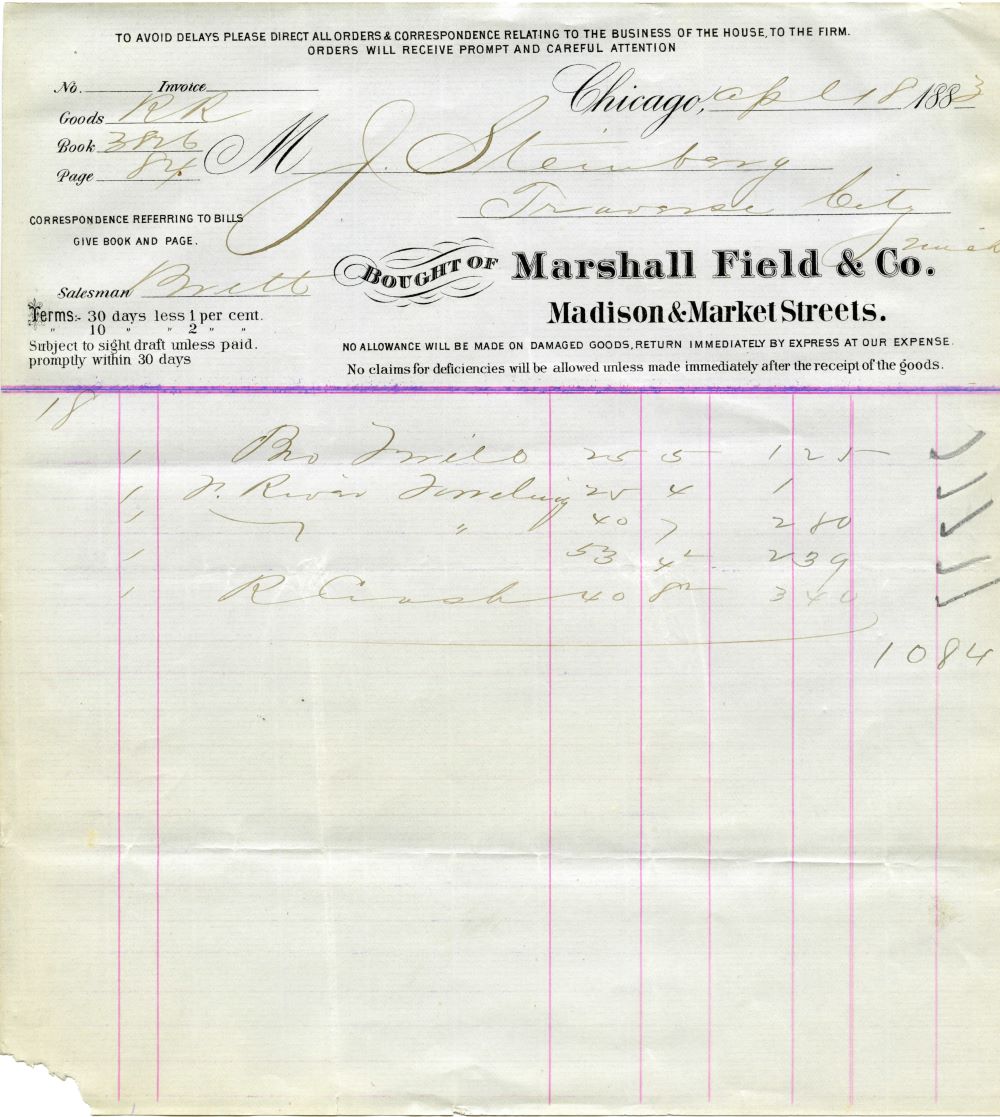 TO AVOID DELAYS PLEASE DIRECT ALL ORDERS & CORRESPONDENCE RELATING TO THE BUSINESS OF THE HOUSE, TO THE FIRM.
ORDERS WILL RECEIVE PROMPT AND CAREFUL ATTENTION
No. Invoice
Chicago, Apl 18 1883
Goods RR
Book 3826
Page 84
M J. Steinberg
Traverse City
Mich
CORRESPONDENCE REFERRING TO BILLS
GIVE BOOK AND PAGE.
BOUGHT OF Marshall Field & Co.
Salesman Britt
Madison & Market Streets.
Terms:- 30 days less 1 per cent.
" 10 " " 2 " "
Subject to sight draft unless paid.
promptly within 30 days
NO ALLOWANCE WILL BE MADE ON DAMAGED GOODS, RETURN IMMEDIATELY BY EXPRESS AT OUR EXPENSE.
No claims for deficiencies will be allowed unless made immediately after the receipt of the goods.
18
1 Bro 25 5 1 25
1 River 25 4 1
1 " 40 7 2 80
1 53 4½ 2 39
1 R Crash 40 8½ 3 40
10 84